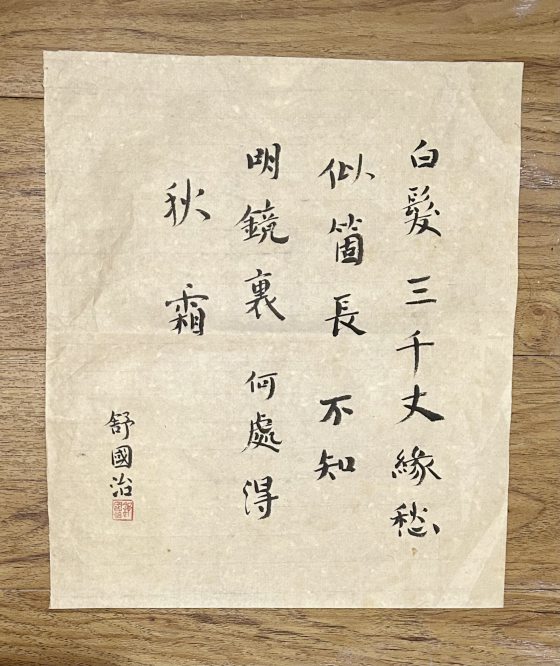 白髮三千丈緣愁
似箇長不知
明鏡裏何處得
秋霜
舒國治